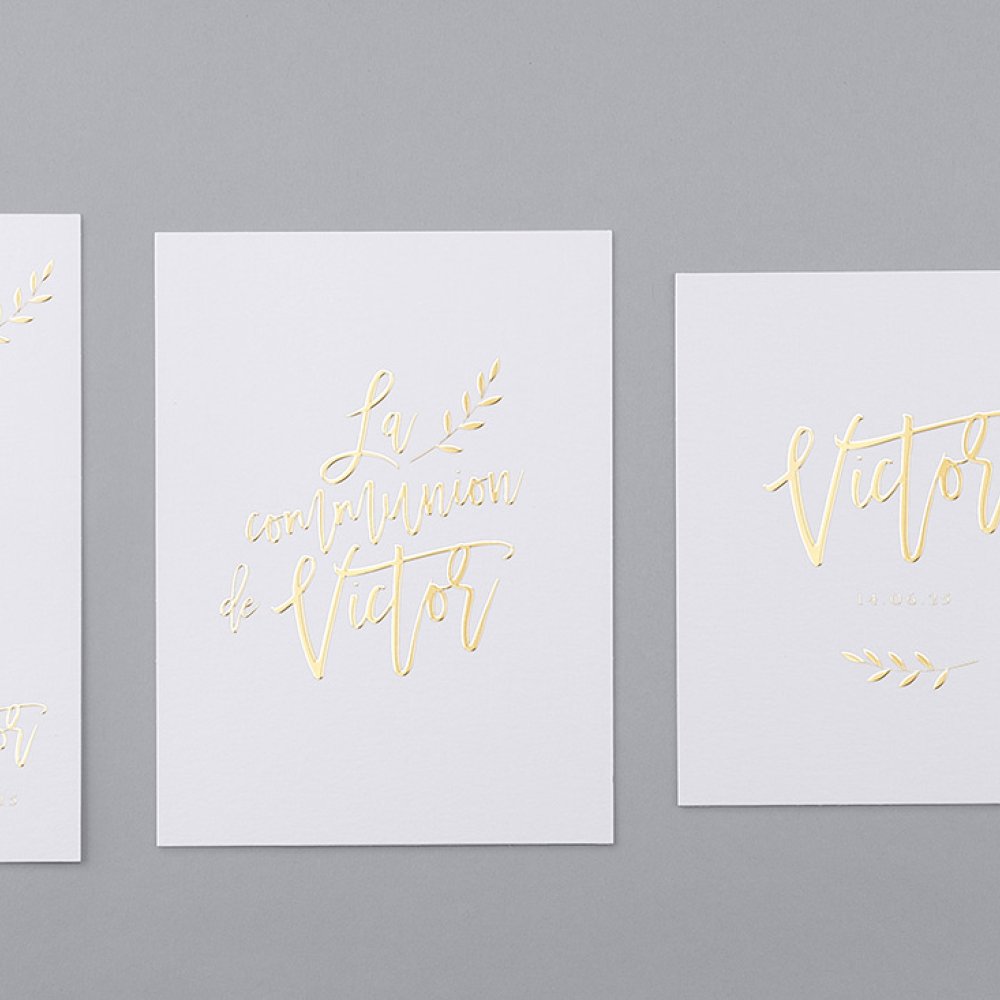 La
communion
de Victor
Victor
14.06.23